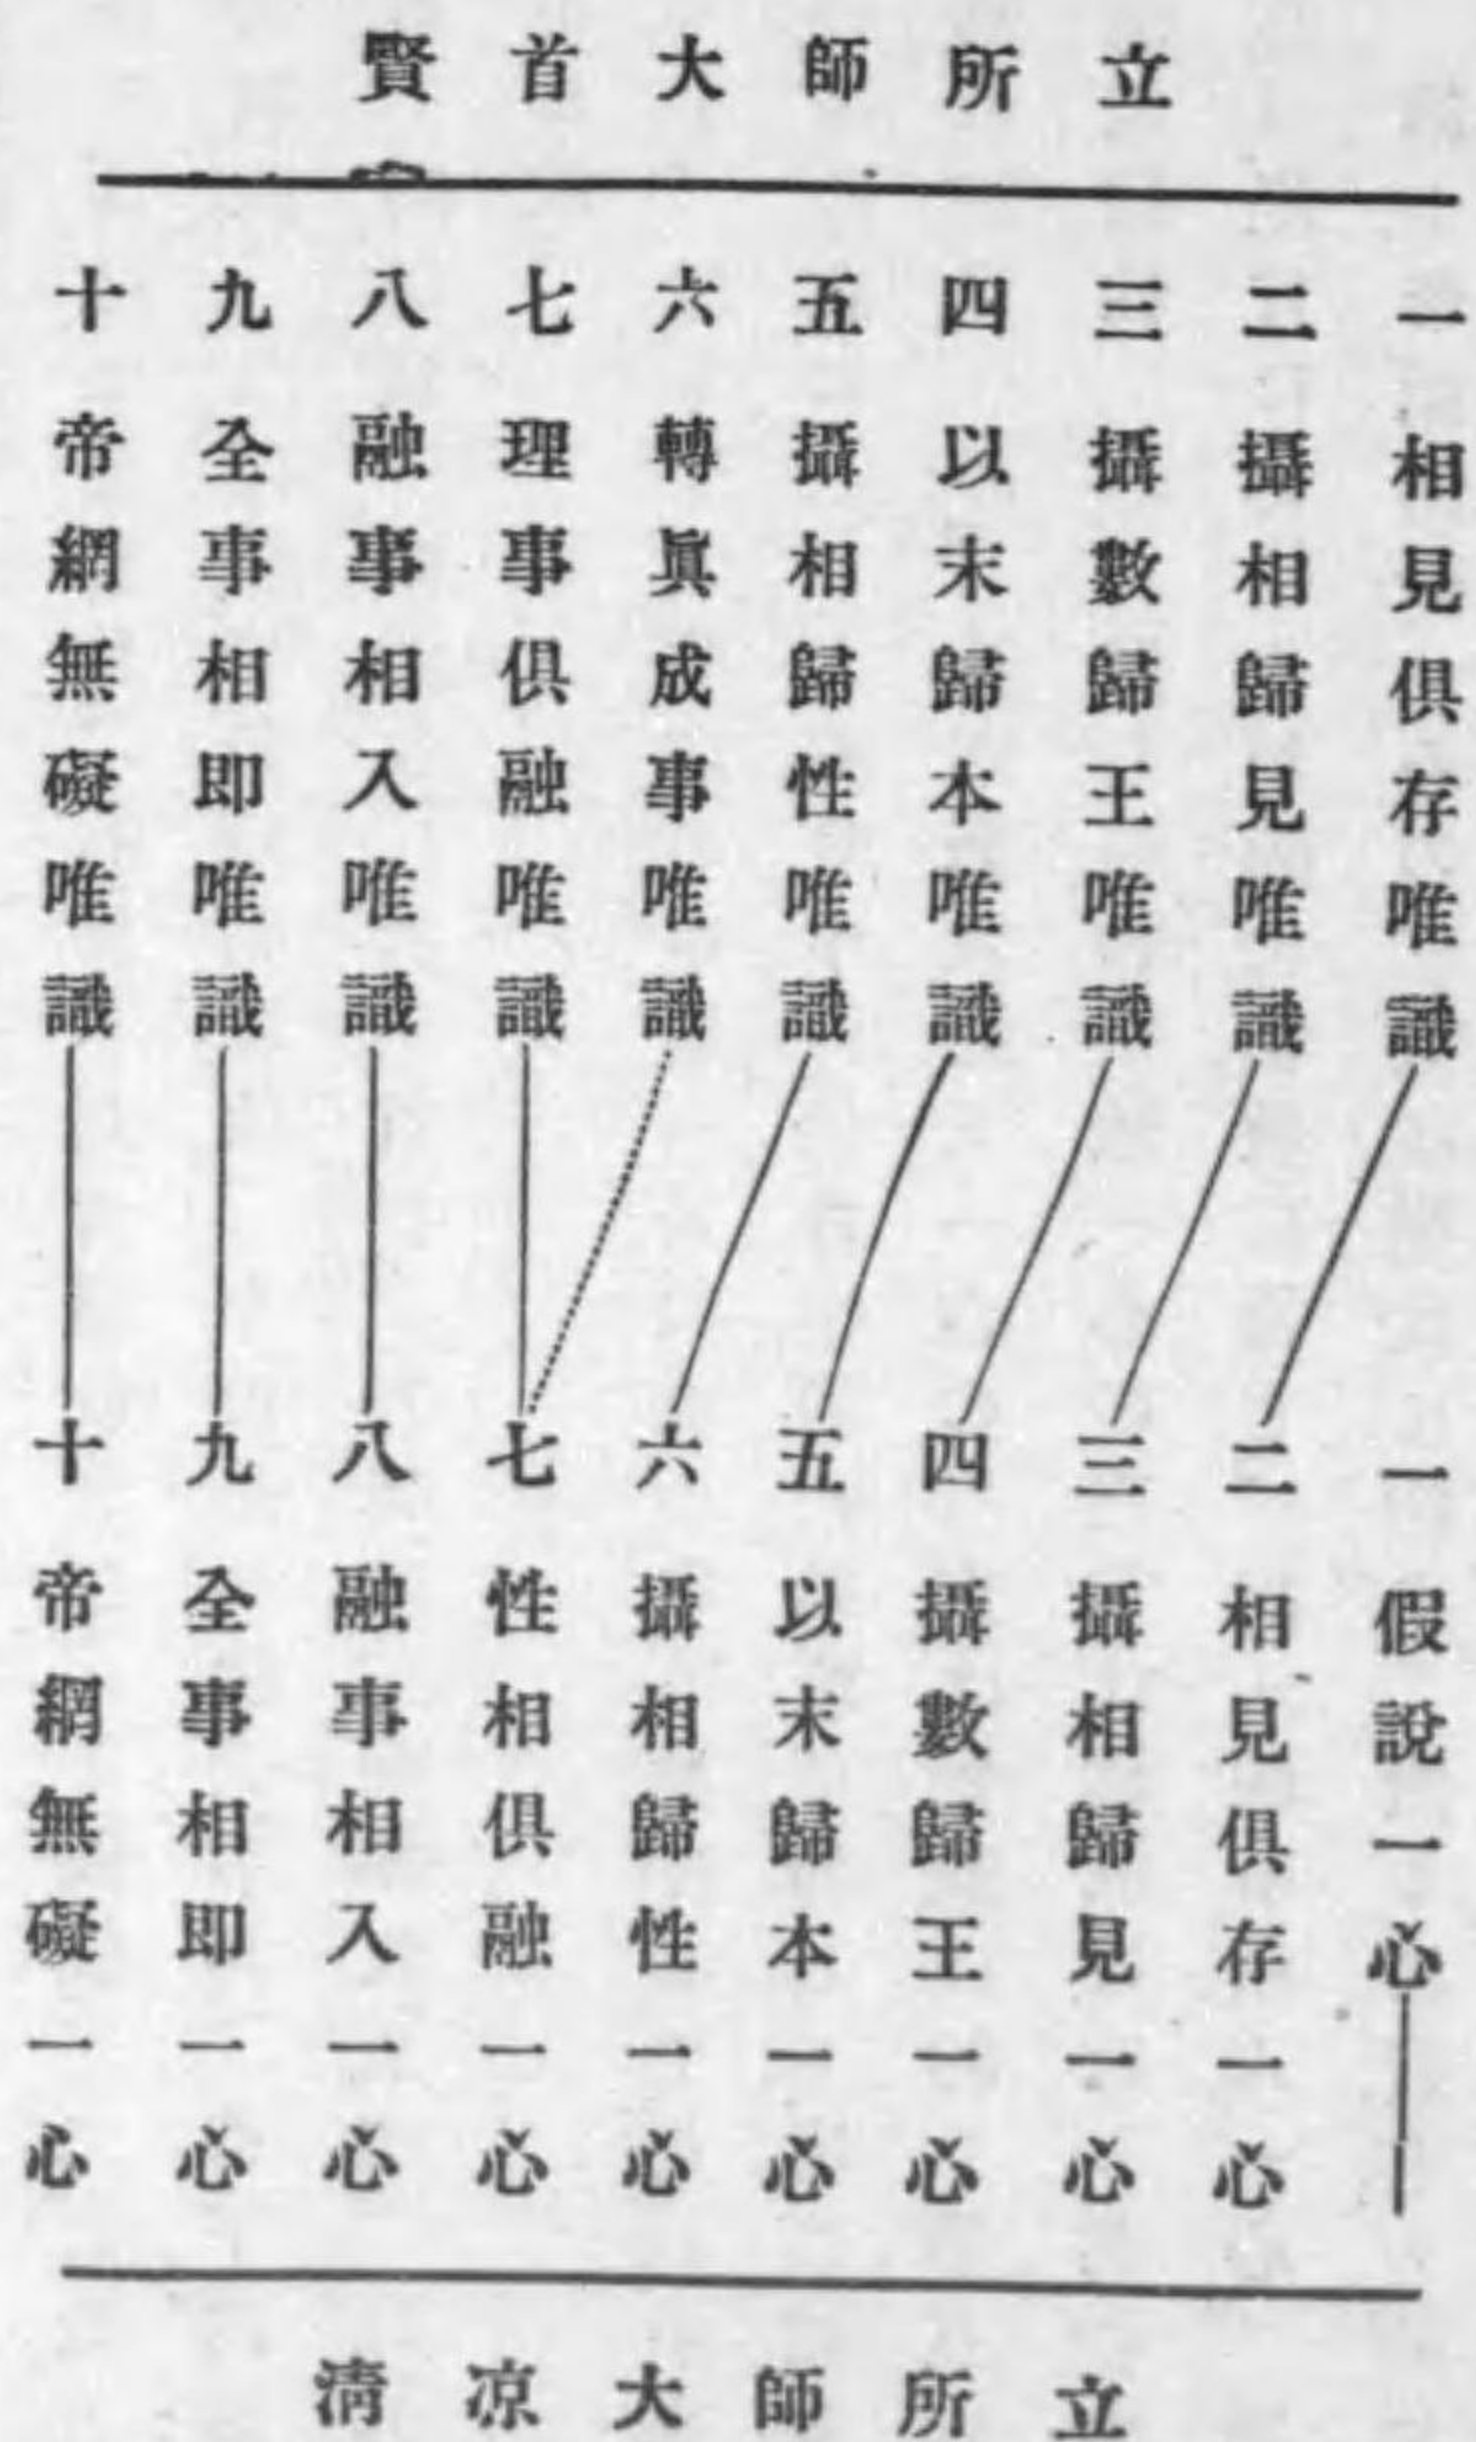 賢首大師所立
一 相見俱存唯識
二 攝相歸見唯識
三 攝數歸王唯識
四 以末歸本唯識
五 攝相歸性唯識
六 轉眞成事唯識
七 理事俱融唯識
八 融事相入唯識
九 全事相即唯識
十 帝網無礙唯識
一 假說一心
二 相見俱存一心
三 攝相歸見一心
四 攝數歸王一心
五 以末歸本一心
六 攝相歸性一心
七 性相俱融一心
八 融事相入一心
九 全事相即一心
十 帝網無礙一心
淸凉大師所立